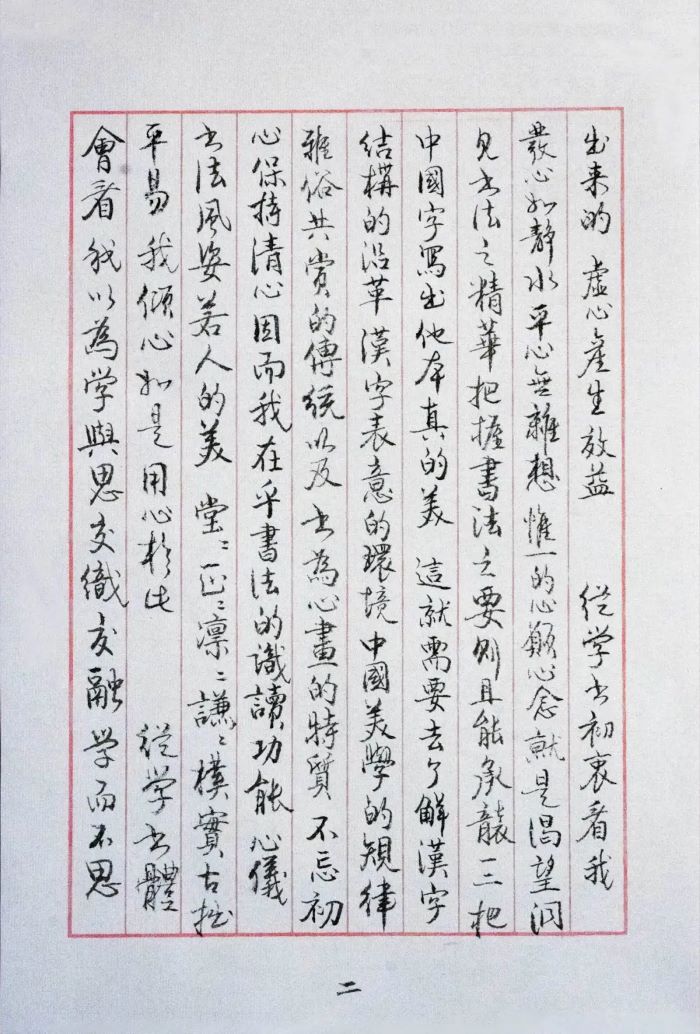 出来的 虚心產生效益 從学书初衷看我
發心如靜水平心無雜想惟一的心願心念就是渴望洞
見书法之精華把握書法之要則且能承襲一三把
中國字寫出他本真的美 這就需要去了解漢字
結構的沿革漢字表意的環境中國美學的規律
雅俗共賞的傳統以及书為心畫的特質不忘初
心保持清心因而我在乎書法的識讀功能心儀
书法風姿若人的美 堂〻正〻凛〻謙〻樸實古拙
平易我傾心如是用心於此 從学书體
會看我以為学與思交織交融学而不思
二